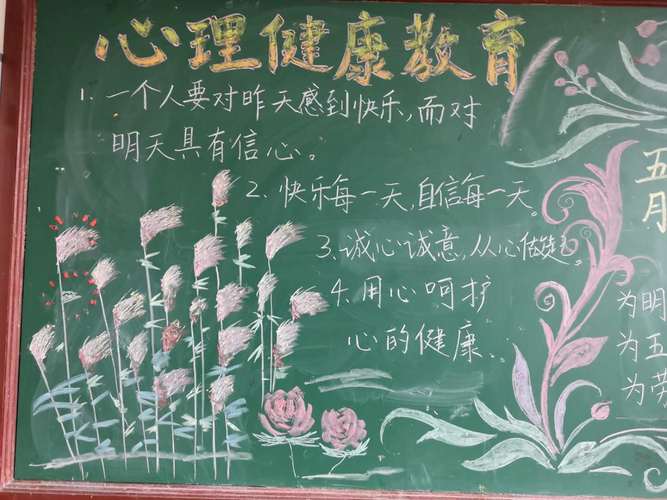 心理健康教育
1. 一个人要对昨天感到快乐,而对
明天具有信心。
2. 快乐每一天,自信每一天。
3. 诚心诚意,从心做起。
4. 用心呵护
心的健康.
五
月
为明
为五
为劳